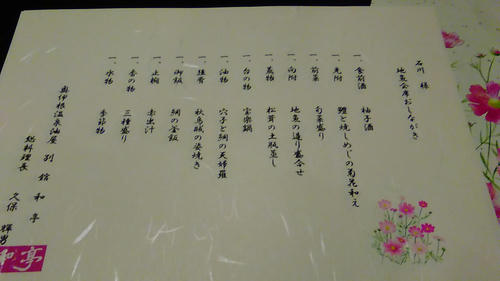 石川 様
地魚会席おしながき
一、食前酒 柚子酒
一、先附 鱧と焼しめじの菊花和え
一、前菜 旬菜盛り
一、向附 地魚の造り盛合せ
一、蒸物 松茸の土瓶蒸し
一、台の物 宝楽鍋
一、油物 穴子と鯛の天婦羅
一、強肴 秋烏賊の姿焼き
一、御飯 鯛の釜飯
一、止椀 赤出汁
一、香の物 三種盛り
一、水物 季節物
奥伊根温泉油屋 別館 和亭
総料理長 久保 輝男
和亭